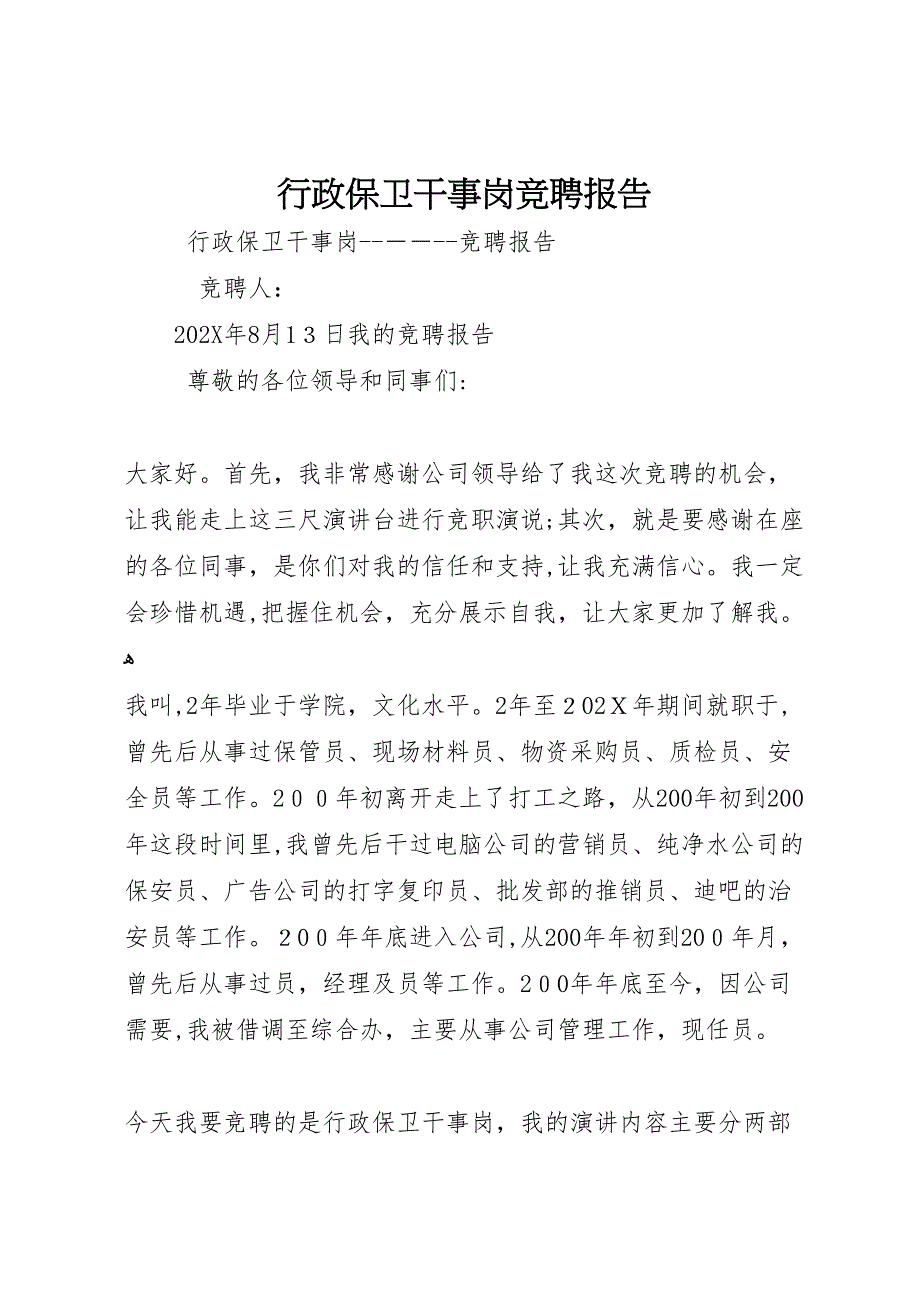 行政保卫干事岗竞聘报告
行政保卫干事岗--－－--竞聘报告
竞聘人：
202X年8月1３日我的竞聘报告
尊敬的各位领导和同事们:
大家好。首先，我非常感谢公司领导给了我这次竞聘的机会，
让我能走上这三尺演讲台进行竞职演说;其次，就是要感谢在座
的各位同事，是你们对我的信任和支持,让我充满信心。我一定
会珍惜机遇,把握住机会，充分展示自我，让大家更加了解我。
ﻫ
我叫,2年毕业于学院，文化水平。2年至２02Ｘ年期间就职于,
曾先后从事过保管员、现场材料员、物资采购员、质检员、安
全员等工作。２００年初离开走上了打工之路，从200年初到200
年这段时间里,我曾先后干过电脑公司的营销员、纯净水公司的
保安员、广告公司的打字复印员、批发部的推销员、迪吧的治
安员等工作。２００年年底进入公司,从200年年初到20０年月，
曾先后从事过员，经理及员等工作。２00年年底至今，因公司
需要,我被借调至综合办，主要从事公司管理工作，现任员。
今天我要竞聘的是行政保卫干事岗，我的演讲内容主要分两部